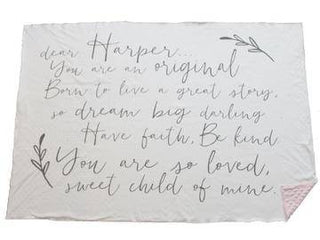 dear Harper...
You are an original
Born to live a great story,
so dream big darling
Have faith, Be kind
You are so loved,
sweet child of mine.